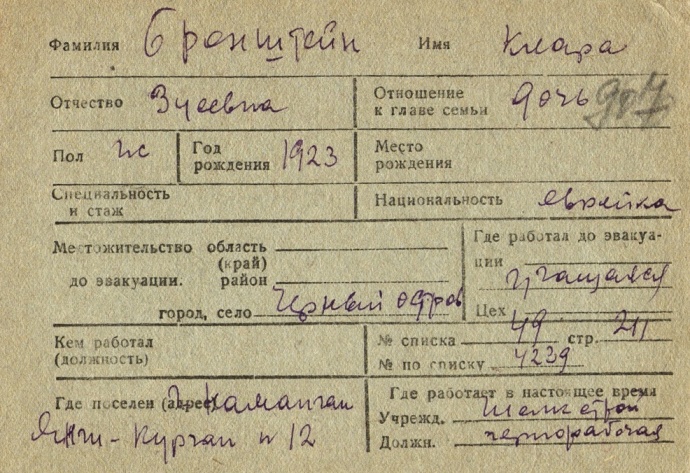 Фамилия Бронштейн Имя Клара
Отчество Зусевна Отношение к главе семьи дочь
Пол ж Год рождения 1923 Место рождения
Специальность и стаж Национальность еврейка
Местожительство область
(край)
до эвакуации. район
город, село Черный остров
Где работал до эвакуации
учащаяся
Цех
Кем работал
(должность)
№ списка 49 стр. 211
№ по списку 4239
Где поселен (адрес) г. Наманган
Янги-Курган п 12
Где работает в настоящее время
Учрежд. Шелкстрой
Должн. чернорабочая